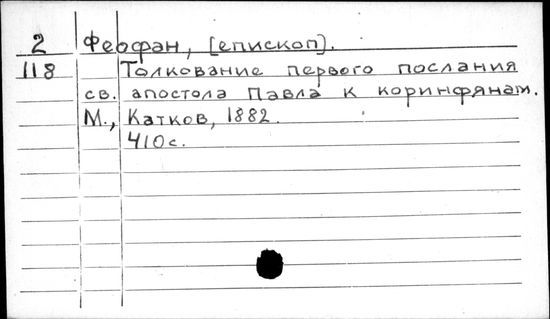 2 Феофан, [епископ].
118 Толкование первого послания
св. апостола Павла к коринфянам.
М., Катков, 1882.
410с.